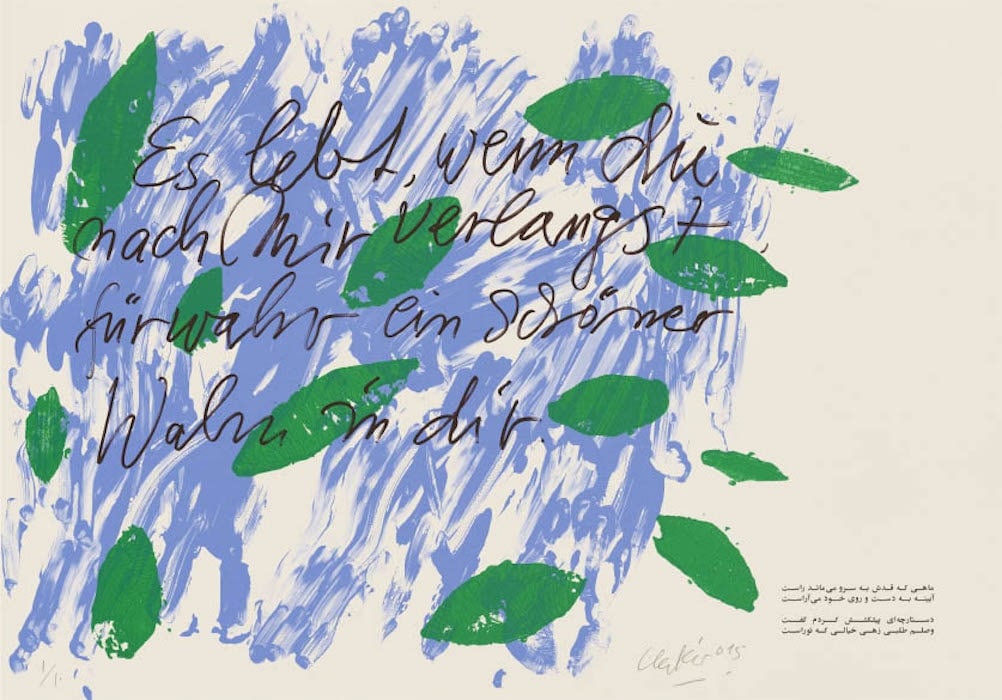 Es lebt, wenn du
nach mir verlangst,
fürwahr ein schöner
Wahn in dir.
ماهی که قدش به سرو می‌ماند راست
آیینه به دست و روی خود می‌آراست
دستارچه‌ای پیشکشش کردم گفت
وصلم طلبی زهی خیالی که توراست
1/1.
015